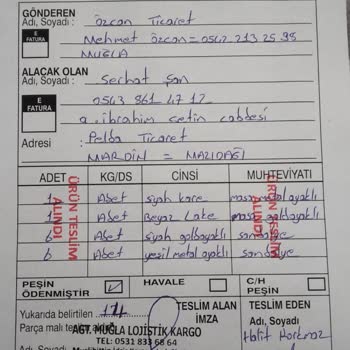 GÖNDEREN
Adı, Soyadı : Özcan Ticaret
E FATURA
Mehmet Özcan = 0542 213 25 98
MUĞLA
ALACAK OLAN
Adı, Soyadı : Serhat Şan
E FATURA
0543 861 47 17
a. ibrahim Çetin caddesi
Adresi : Pelba Ticaret
MARDİN = MAZIDAĞI
ADET KG/DS CİNSİ MUHTEVİYATI
1 Abet siyah kare masa metal ayaklı
1 Abet Beyaz Lake masa ayaklı
6 Abet siyah ayaklı sandalye
6 Abet yeşil metal ayaklı sandalye
ÜRÜN TESLİM ALINDI
ÜRÜN TESLİM ALINDI
PEŞİN ÖDENMİŞTİR
HAVALE
C/H PEŞİN
Yukarıda belirtilen 14
Parça malı teslim aldım
TESLİM ALAN
İMZA
TESLİM EDEN
Adı, Soyadı
Halit
AGT. MUĞLA LOJİSTİK KARGO
TEL: 0531 833 68 64